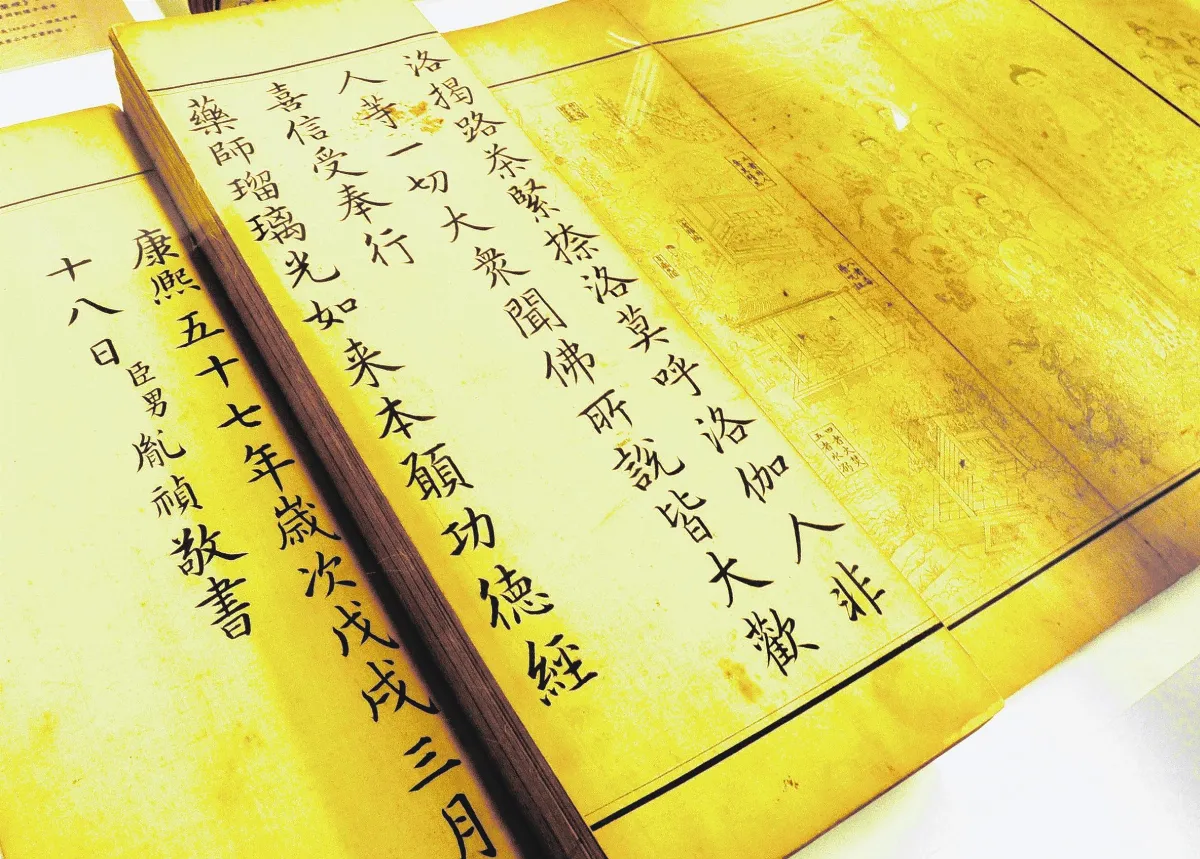 洛揭路茶緊捺洛莫呼洛伽人非
人等一切大衆聞佛所說皆大歡
喜信受奉行
藥師瑠璃光如来本願功德經
康熙五十七年歲次戊戌三月
十八日臣男胤禎敬書